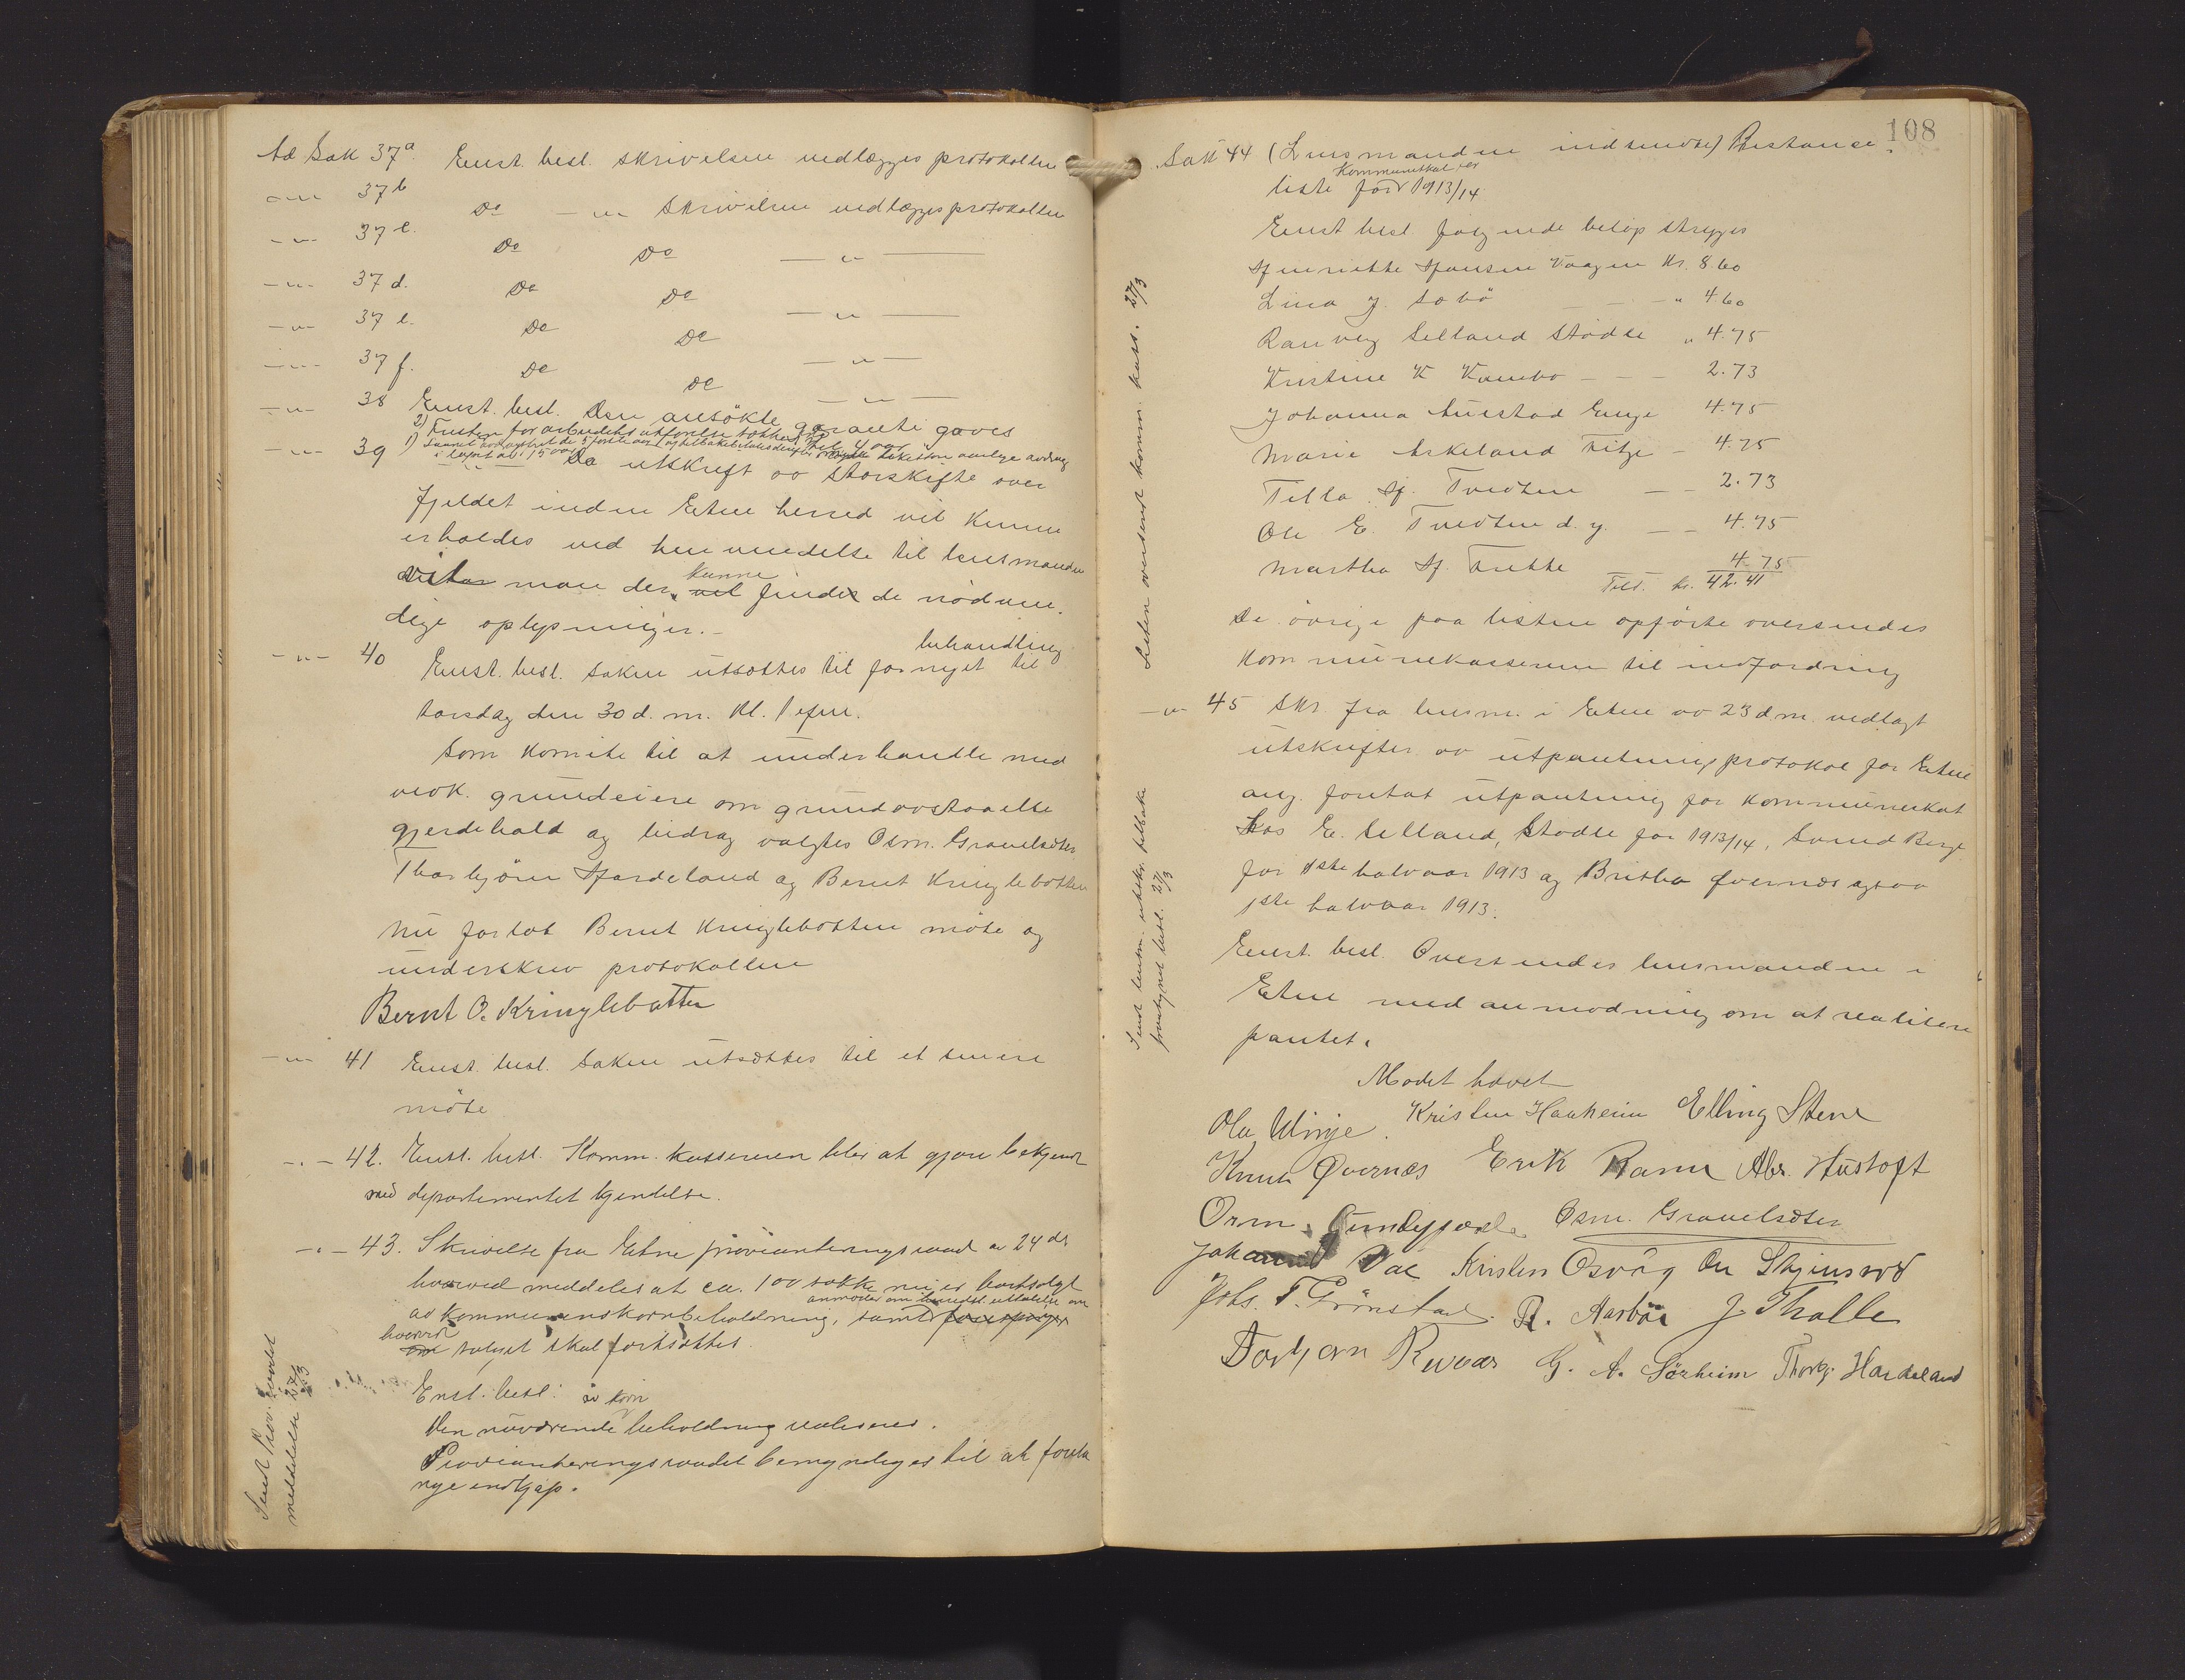 Ad Sak 37a. Enst. besl. skrivelsen vedlægges protokollen
-"- 37b Do -"- skrivelsen vedlægges protokollen
-"- 37c. Do Do -"-
-"- 37d. Do Do -"-
-"- 37e. Do Do -"-
-"- 37f. De De -"-
-"- 38 Enst. besl. Den ansøkte garanti gaves
2) Fristen for arbeidets utførelse sættes til 4 aar
-"- 39 Da utskrift av storskifte over
fjeldet inden Etne herred vil kunne
erholdes ved henvendelse til lensmanden
man der kunne finde de nødven-
dige oplysninger.-
behandling
-"- 40 Enst. besl. Saken utsættes til fornyet til
torsdag den 30 d. m. Kl. 1 efm.
Som komite til at underhandle med
vedk. grundeiere om grundavstaaelse
gjerdehold og bidrag valgtes Osm. Gravelsæter
Thorbjørn Hardeland og Bernt Kringlebotten
Nu forlot Bernt Kringlebotten møte og
underskrev protokollen
Bernt O. Kringlebotten
-"- 41 Enst. besl. Saken utsættes til et senere
møte
-"- 42. Enst. besl. Komm. kassereren blir at gjøre bekjent
med departementet kjendelse.
-"- 43. Skrivelse fra Etne provianteringsraad av 24 ds
hvorved meddeles at ca. 100 sække nu er bortsolgt
anmoder om herredst. uttalelse om
av kommunens kornbeholdning, samt forespørger
hvorvidt
om salget skal fortsættes.
Enst. besl.
av korn
Den nuværende beholdning realiseres.
Provianteringsraadet bemyndiges til at foreta
nye indkjøp.
Sendt Prov. raadet
meddelelse 27/3
108
Sak 44 (Lensmanden indsendte) Restance
Kommuneskat
liste for 1913/14
Enst besl følgende beløp strykes
Henriette Hansen Vaagen Kr. 8.60
Lina J. Sæbø - - " 4.60
Ranveig Selland Stødle " 4.75
Kristine K Kambo - - - 2.73
Johanna Aurstad Enge 4.75
Marie Askeland Fitje - 4.75
Tilla H. Tvedten - - 2.73
Ole E. Tvedten d. y. - - 4.75
Martha H. Frette 4.75
Tils. kr. 42.41
De øvrige paa listen opførte oversendes
kommunekassereren til indfordring
-"- 45 Skr. fra lensm. i Etne av 23 d.m. vedlagt
utskrifter av utpantningsprotokol for Etne
ang. foretat utpantning for kommuneskat
hos E. Selland, Stødle for 1913/14, Svend Berge
for 1ste halvaar 1913 og Britha Øvernæs ogsaa
1ste halvaar 1913.
Enst. besl. Oversendes lensmanden i
Etne med anmodning om at realisere
pantet.
Listen oversendt komm. kass. 27/3
Sendt lensm. utskr. tilbake
27/3
Mødet hævet
Ola Vinje. Kristen Haaheim Elling Stene
Knut Øvernæs Erik Ramn Abr. Hustoft
Orm. Osm. Gravelsæter
Johannes Dal Kristen Osvåg
Johs. T. Grønstad. R. Aarbø J Tralle
Torbjørn Revaar G. A. Sørheim Thorbj Hardeland